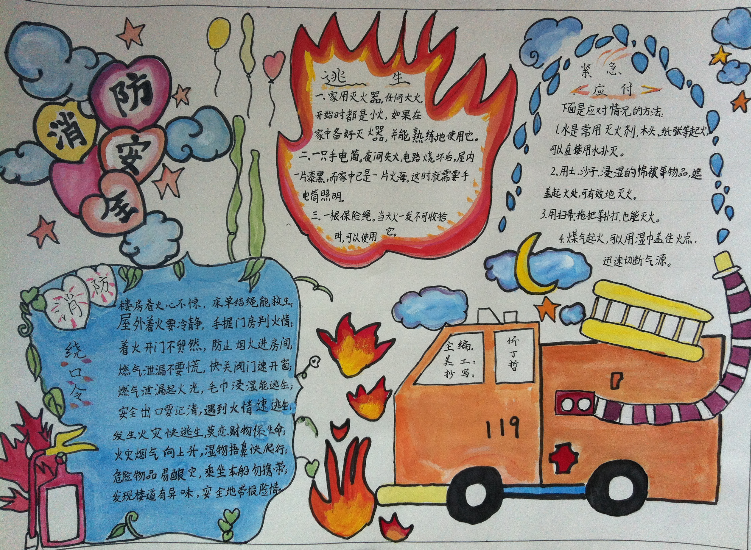 消防安全
逃生
一.家用灭火器,任何大火,
开始时都是小火,如果在
家中备好灭火器,并能熟练地使用它。
二.一只手电筒,夜间失火,电路烧坏后,屋内
一片漆黑,而家中已是一片火海,这时就需要手
电筒照明。
三.一根保险绳,当大火一发不可收拾
时,可以使用它。
紧急
应付
下面是应对情况的方法.
1.水是常用灭火剂,木头,纸张等起火,
可以直接用水扑灭。
2.用土,沙子,浸湿的棉被等物品,遮
盖起火处,可有效地灭火。
3.用扫帚,拖把等扑打,也能灭火。
4.煤气起火,可以用湿巾盖住火点.
迅速切断气源。
消防
绕口令
楼房着火心不惊,床单结绳能救生,
屋外着火要冷静,手握门房判火情,
着火开门不贸然,防止烟火进房间,
燃气泄漏不要慌,快关阀门速开窗,
燃气泄漏起火光,毛巾浸湿能逃生,
安全出口要记清,遇到火情速逃生,
发生火灾快逃生,莫恋财物保生命,
火灾烟气向上升,湿物捂鼻快爬行,
危险物品易酿灾,乘坐车船勿携带,
发现楼道有异味,安全地带报险情.
主编.
美工:
抄写.
119